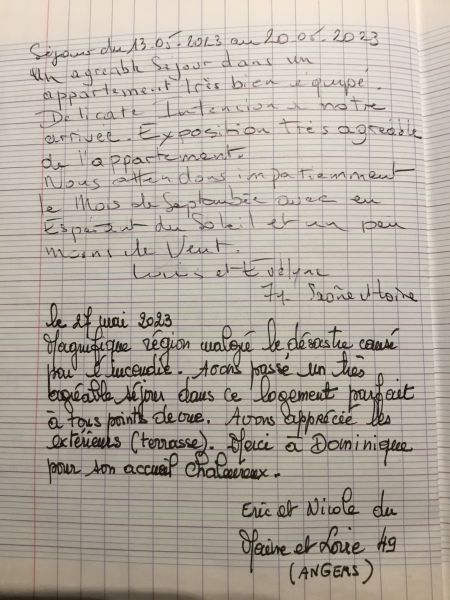 Séjour du 13.05.2023 au 20.05.2023
Un agréable séjour dans un
appartement très bien équipé.
Délicate Intention à notre
arrivée. Exposition très agréable
de l'appartement.
Nous attendons impatiemment
le Mois de Septembre avec en
Espérant du Soleil et un peu
moins de Vent.
Louis et Evelyne
71. Saône et Loire
le 27 mai 2023
Magnifique région malgré le désastre causé
par l'incendie. Avons passé un très
agréable séjour dans ce logement parfait
à tous points de vue. Avons apprécié les
extérieurs (terrasse). Merci à Dominique
pour son accueil chaleureux.
Eric et Nicole du
Maine et Loire 49
(ANGERS)